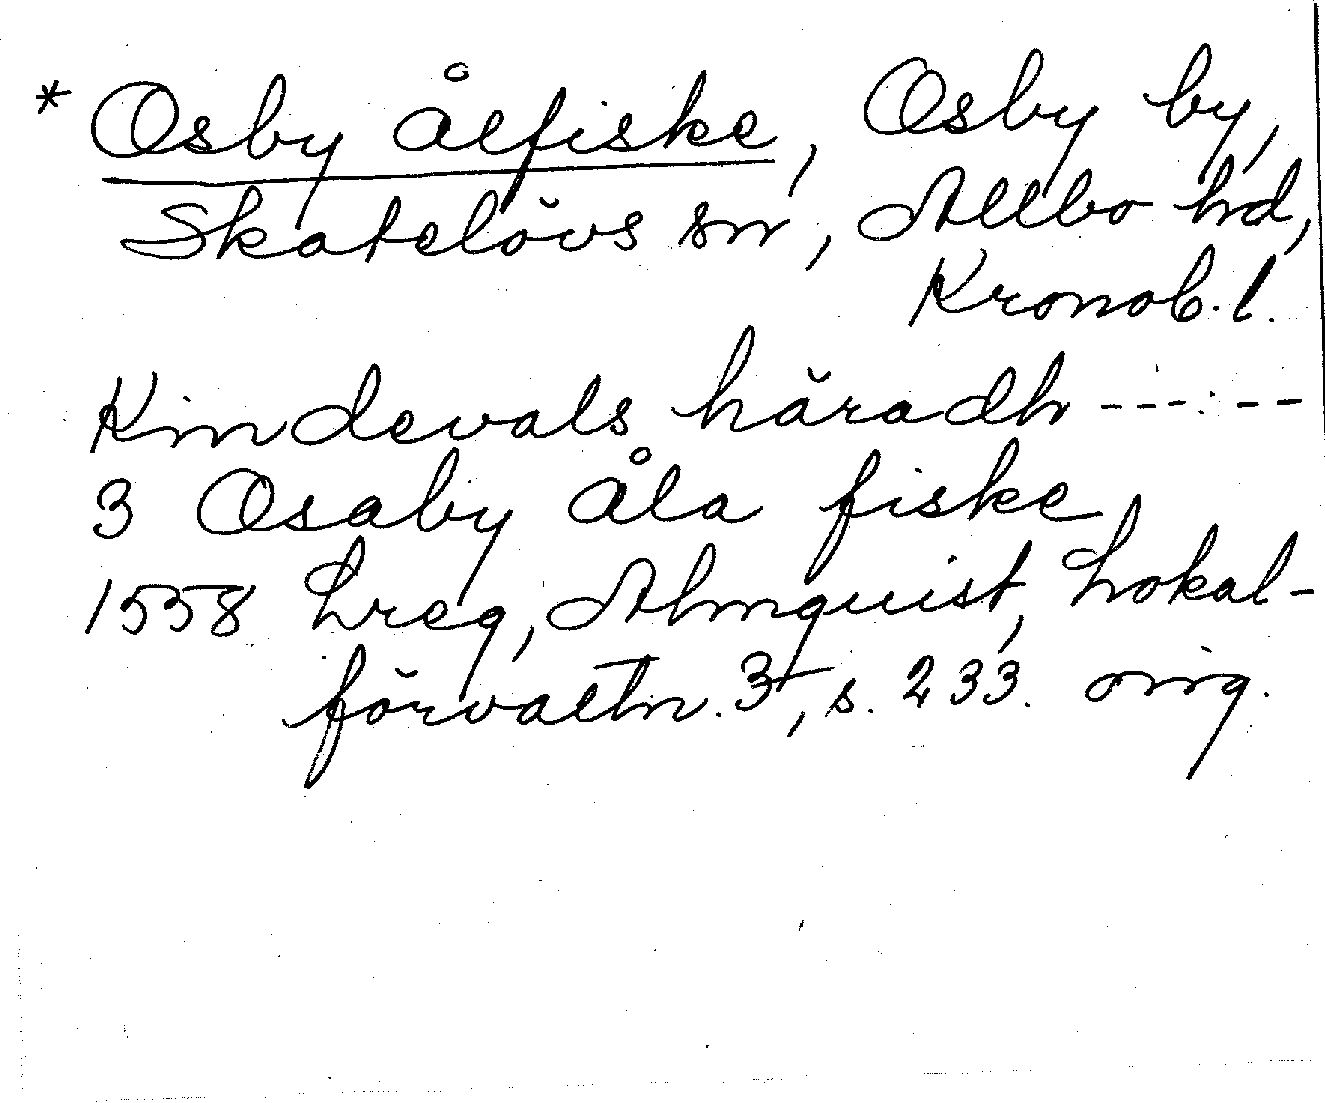 * Osby ålfiske, Osby by,
Skatelövs sn, Allbo hd,
Kronob. l.
Kindevals häradh ------
3 Osaby åla fiske
1558 Lreg, Almquist, Lokal-
förvaltn. 3, s. 233. orig.